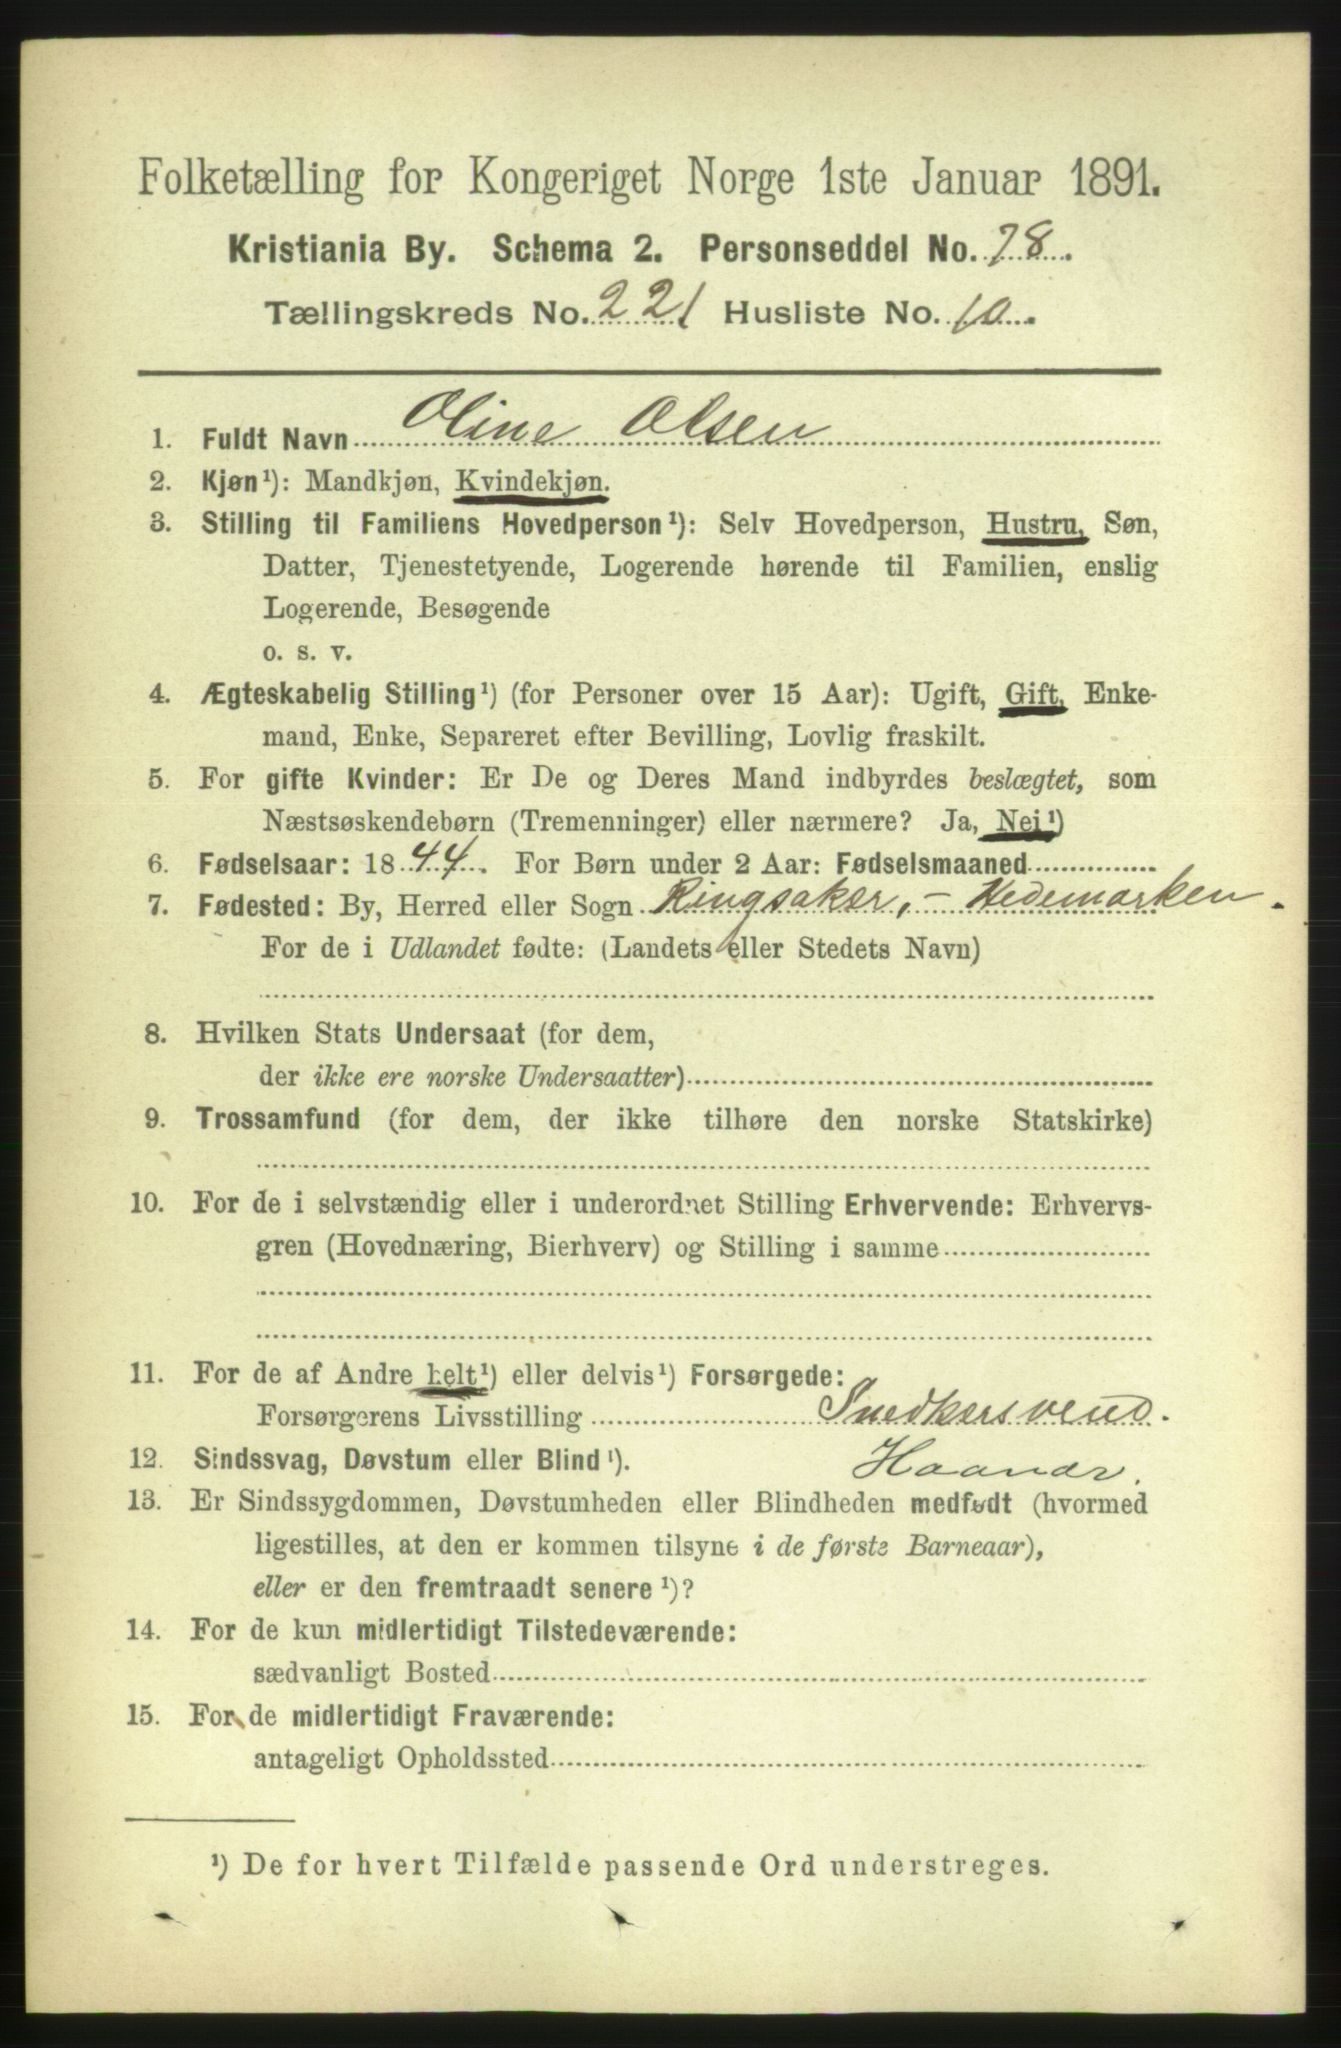 Folketælling for Kongeriget Norge 1ste Januar 1891.
Kristiania By. Schema 2. Personseddel No. 78.
Tællingskreds No. 221 Husliste No. 10.
1. Fuldt Navn Oline Olsen
2. Kjøn¹): Mandkjøn, Kvindekjøn.
3. Stilling til Familiens Hovedperson¹): Selv Hovedperson, Hustru, Søn,
Datter, Tjenestetyende, Logerende hørende til Familien, enslig
Logerende, Besøgende
o. s. v.
4. Ægteskabelig Stilling¹) (for Personer over 15 Aar): Ugift, Gift, Enke-
mand, Enke, Separeret efter Bevilling, Lovlig fraskilt.
5. For gifte Kvinder: Er De og Deres Mand indbyrdes beslægtet, som
Næstsøskendebørn (Tremenninger) eller nærmere? Ja, Nei¹)
6. Fødselsaar: 1844. For Børn under 2 Aar: Fødselsmaaned
7. Fødested: By, Herred eller Sogn Ringsaker, - Hedemarken.
For de i Udlandet fødte: (Landets eller Stedets Navn)
8. Hvilken Stats Undersaat (for dem,
der ikke ere norske Undersaatter)
9. Trossamfund (for dem, der ikke tilhøre den norske Statskirke)
10. For de i selvstændig eller i underordnet Stilling Erhvervende: Erhvervs-
gren (Hovednæring, Bierhverv) og Stilling i samme
11. For de af Andre helt¹) eller delvis¹) Forsørgede:
Forsørgerens Livsstilling Snedkersvend.
12. Sindssvag, Døvstum eller Blind¹). Haandv.
13. Er Sindssygdommen, Døvstumheden eller Blindheden medfødt (hvormed
ligestilles, at den er kommen tilsyne i de første Barneaar),
eller er den fremtraadt senere¹)?
14. For de kun midlertidigt Tilstedeværende:
sædvanligt Bosted
15. For de midlertidigt Fraværende:
antageligt Opholdssted
¹) De for hvert Tilfælde passende Ord understreges.